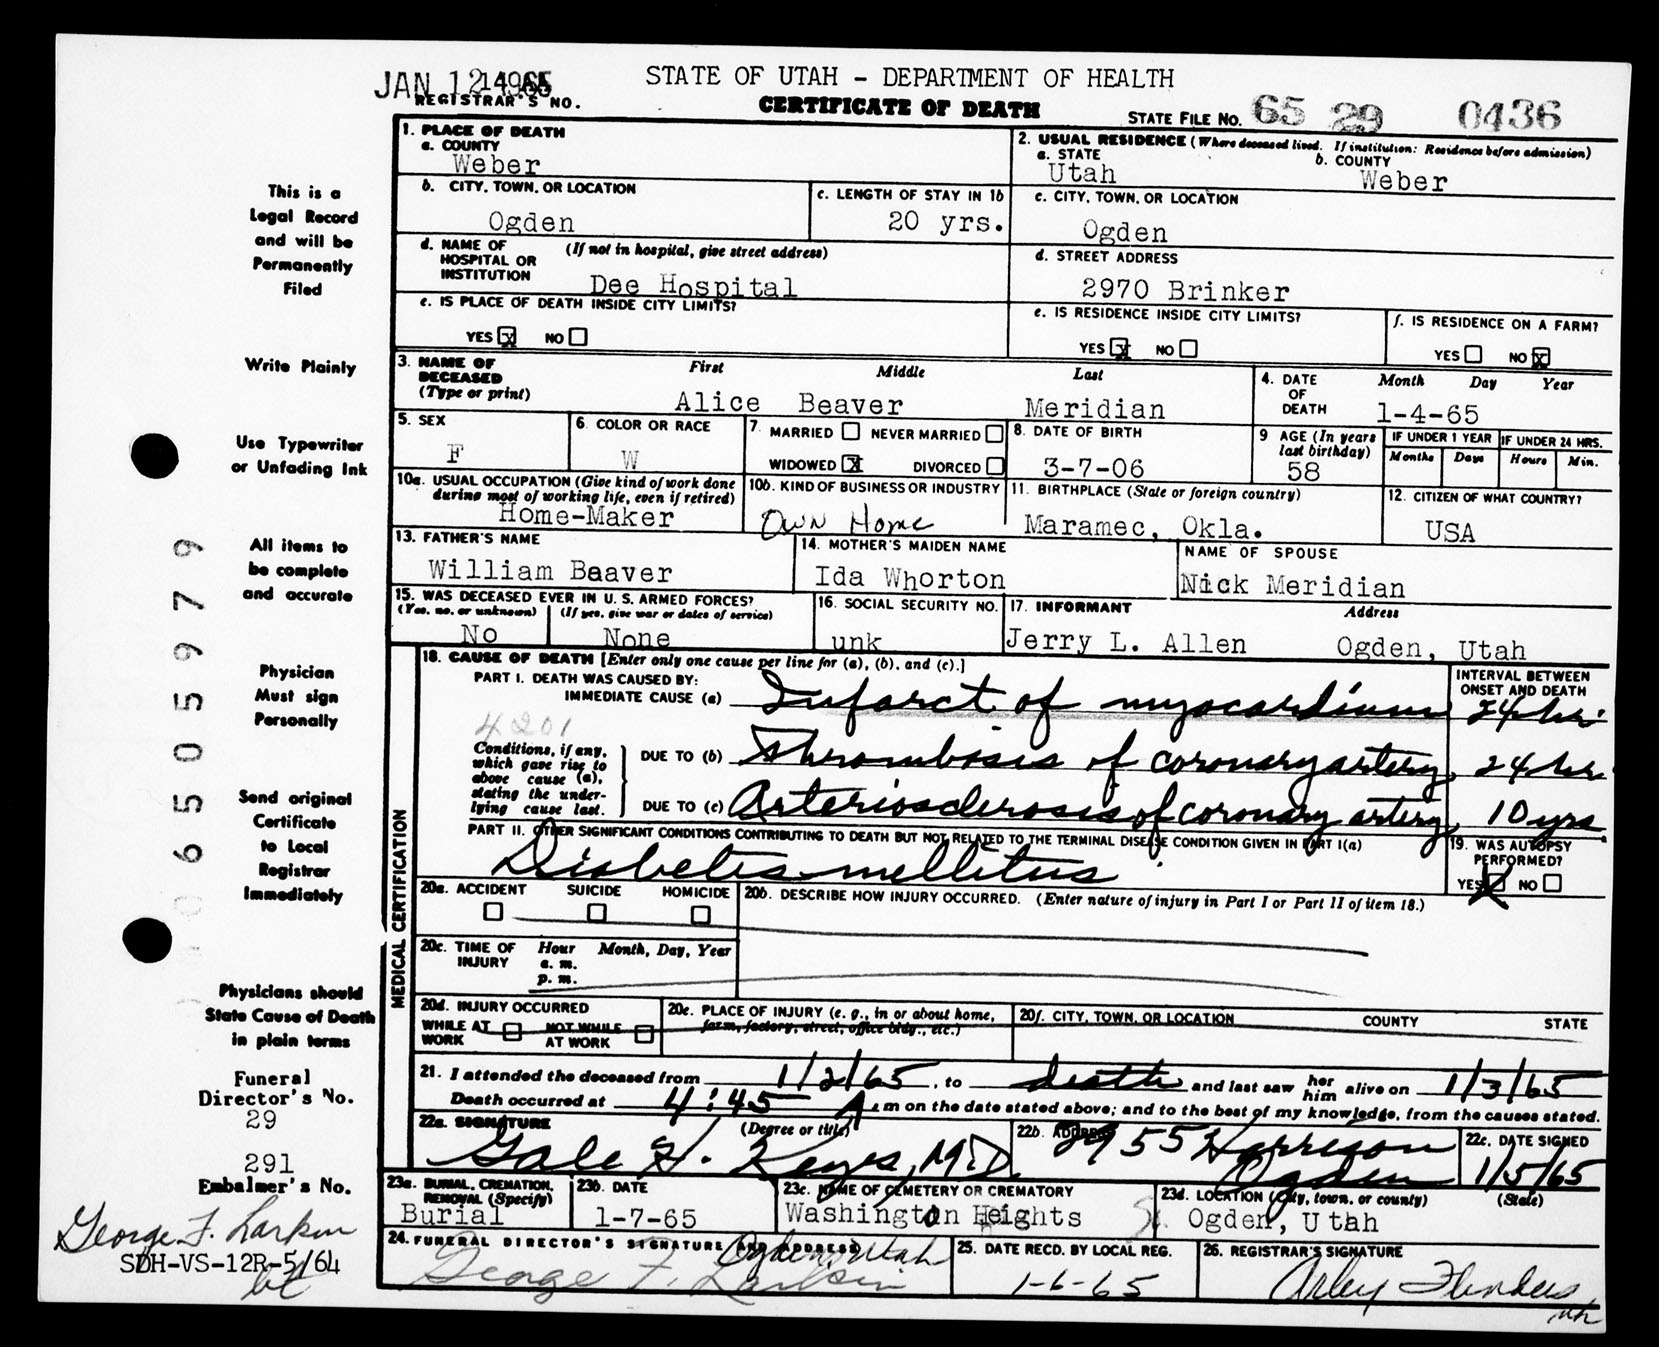 STATE OF UTAH - DEPARTMENT OF HEALTH
JAN 12 1965
REGISTRAR'S NO.
CERTIFICATE OF DEATH
STATE FILE NO. 65 29 0436
This is a
Legal Record
and will be
Permanently
Filed
Write Plainly
Use Typewriter
or Unfading Ink
All items to
be complete
and accurate
Physician
Must sign
Personally
Send original
Certificate
to Local
Registrar
Immediately
Physicians should
State Cause of Death
in plain terms
Funeral
Director's No.
29
291
Embalmer's No.
George F. Larkin
SDH-VS-12R-5/64
650505979
1. PLACE OF DEATH
a. COUNTY
Weber
2. USUAL RESIDENCE (Where deceased lived. If institution: Residence before admission)
a. STATE
Utah
b. COUNTY
Weber
b. CITY, TOWN, OR LOCATION
Ogden
c. LENGTH OF STAY IN 1b
20 yrs.
c. CITY, TOWN, OR LOCATION
Ogden
d. NAME OF HOSPITAL OR INSTITUTION (If not in hospital, give street address)
Dee Hospital
d. STREET ADDRESS
2970 Brinker
e. IS PLACE OF DEATH INSIDE CITY LIMITS?
YES X NO
e. IS RESIDENCE INSIDE CITY LIMITS?
YES X NO
f. IS RESIDENCE ON A FARM?
YES NO X
3. NAME OF DECEASED (Type or print)
First Middle Last
Alice Beaver Meridian
4. DATE OF DEATH
Month Day Year
1-4-65
5. SEX
F
6. COLOR OR RACE
W
7. MARRIED NEVER MARRIED
WIDOWED X DIVORCED
8. DATE OF BIRTH
3-7-06
9 AGE (In years last birthday)
58
IF UNDER 1 YEAR
Months Days
IF UNDER 24 HRS.
Hours Min.
10a. USUAL OCCUPATION (Give kind of work done during most of working life, even if retired)
Home-Maker
10b. KIND OF BUSINESS OR INDUSTRY
Own Home
11. BIRTHPLACE (State or foreign country)
Maramec, Okla.
12. CITIZEN OF WHAT COUNTRY?
USA
13. FATHER'S NAME
William Beaver
14. MOTHER'S MAIDEN NAME
Ida Whorton
NAME OF SPOUSE
Nick Meridian
15. WAS DECEASED EVER IN U.S. ARMED FORCES?
(Yes, no, or unknown) (If yes, give war or dates of service)
No None
16. SOCIAL SECURITY NO.
unk
17. INFORMANT Address
Jerry L. Allen Ogden, Utah
MEDICAL CERTIFICATION
18. CAUSE OF DEATH [Enter only one cause per line for (a), (b), and (c).]
INTERVAL BETWEEN ONSET AND DEATH
PART I. DEATH WAS CAUSED BY:
IMMEDIATE CAUSE (a) Infarct of myocardium 24 hr.
4201
Conditions, if any, which gave rise to above cause (a), stating the underlying cause last.
DUE TO (b) Thrombosis of coronary artery 24 hr
DUE TO (c) Arteriosclerosis of coronary artery 10 yrs
PART II. OTHER SIGNIFICANT CONDITIONS CONTRIBUTING TO DEATH BUT NOT RELATED TO THE TERMINAL DISEASE CONDITION GIVEN IN PART I(a)
Diabetes mellitus
19. WAS AUTOPSY PERFORMED?
YES X NO
20a. ACCIDENT SUICIDE HOMICIDE
20b. DESCRIBE HOW INJURY OCCURRED. (Enter nature of injury in Part I or Part II of item 18.)
20c. TIME OF INJURY
Hour Month, Day, Year
a. m.
p. m.
20d. INJURY OCCURRED
WHILE AT WORK NOT WHILE AT WORK
20e. PLACE OF INJURY (e. g., in or about home, farm, factory, street, office bldg., etc.)
20f. CITY, TOWN, OR LOCATION COUNTY STATE
21. I attended the deceased from 1/2/65, to death and last saw her him alive on 1/3/65
Death occurred at 4:45 A. m on the date stated above; and to the best of my knowledge, from the causes stated.
22a. SIGNATURE (Degree or title)
Gale H. Keyes, M.D.
22b. ADDRESS
2955 Harrison
Ogden
22c. DATE SIGNED
1/5/65
23a. BURIAL, CREMATION, REMOVAL (Specify)
Burial
23b. DATE
1-7-65
23c. NAME OF CEMETERY OR CREMATORY
Washington Heights
23d. LOCATION (City, town, or county) (State)
Ogden, Utah
24. FUNERAL DIRECTOR'S SIGNATURE AND ADDRESS
George F. Larkin Ogden, Utah
25. DATE RECD. BY LOCAL REG.
1-6-65
26. REGISTRAR'S SIGNATURE
Arley Flinders